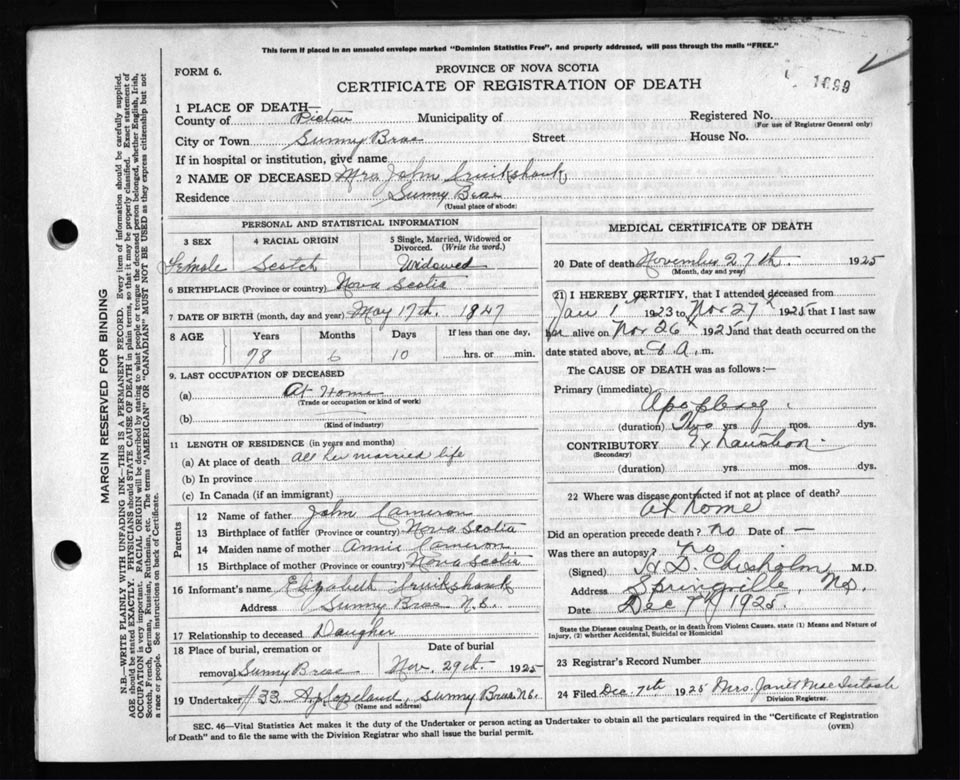 This form if placed in an unsealed envelope marked "Dominion Statistics Free", and properly addressed, will pass through the mails "FREE."
FORM 6.
PROVINCE OF NOVA SCOTIA
CERTIFICATE OF REGISTRATION OF DEATH
1 PLACE OF DEATH—
County of Pictou Municipality of Registered No.
(For use of Registrar General only)
City or Town Sunny Brae Street House No.
If in hospital or institution, give name
2 NAME OF DECEASED Mrs John Cruikshank
Residence Sunny Brae
(Usual place of abode)
PERSONAL AND STATISTICAL INFORMATION
3 SEX 4 RACIAL ORIGIN 5 Single, Married, Widowed or Divorced. (Write the word.)
Female Scotch Widowed
6 BIRTHPLACE (Province or country) Nova Scotia
7 DATE OF BIRTH (month, day and year) May 17th. 1847
8 AGE Years Months Days If less than one day,
78 6 10 hrs. or min.
9. LAST OCCUPATION OF DECEASED
(a) At Home
(Trade or occupation or kind of work)
(b)
(Kind of industry)
11 LENGTH OF RESIDENCE (in years and months)
(a) At place of death all her married life
(b) In province
(c) In Canada (if an immigrant)
Parents
12 Name of father John Cameron
13 Birthplace of father (Province or country) Nova Scotia
14 Maiden name of mother Annie Cameron
15 Birthplace of mother (Province or country) Nova Scotia
16 Informant's name Elizabeth Cruikshank
Address Sunny Brae N.S.
17 Relationship to deceased Daugher
18 Place of burial, cremation or Date of burial
removal Sunny Brae Nov. 29th. 1925
19 Undertaker Copeland, Sunny Brae N.S.
(Name and address)
MEDICAL CERTIFICATE OF DEATH
20 Date of death November 27th. 1925
(Month, day and year)
21 I HEREBY CERTIFY, that I attended deceased from
Jan 1st 1923 to Nov 27th 1925 that I last saw
her alive on Nov 26th 1925 and that death occurred on
date stated above, at A. m.
The CAUSE OF DEATH was as follows:—
Primary (immediate)
Apoplexy
(duration) Two yrs mos. dys.
CONTRIBUTORY Exhaustion
(Secondary)
(duration) yrs. mos. dys.
22 Where was disease contracted if not at place of death?
at home
Did an operation precede death? no Date of —
Was there an autopsy? No
(Signed) H. D. Chisholm M.D.
Address Springville, NS.
Date Dec 7th, 1925.
State the Disease causing Death, or in death from Violent Causes, state (1) Means and Nature of Injury, (2) whether Accidental, Suicidal or Homicidal
23 Registrar's Record Number
24 Filed Dec. 7th 1925 Mrs. Janet MacIntosh
Division Registrar.
SEC. 46—Vital Statistics Act makes it the duty of the Undertaker or person acting as Undertaker to obtain all the particulars required in the "Certificate of Registration
of Death" and to file the same with the Division Registrar who shall issue the burial permit.
(OVER)
MARGIN RESERVED FOR BINDING
N.B.—WRITE PLAINLY WITH UNFADING INK—THIS IS A PERMANENT RECORD. Every item of information should be carefully supplied.
AGE should be stated EXACTLY. PHYSICIANS should STATE CAUSE OF DEATH in plain terms, so that it may be properly classified. Exact statement of
OCCUPATION is very important. RACIAL ORIGIN will be described by stating to what people or tongue the deceased person belonged, whether English, Irish,
Scotch, French, German, Russian, Ruthenian, etc. The terms "AMERICAN" or "CANADIAN" MUST NOT BE USED as they express citizenship but not
a race or people. See instructions on back of Certificate.